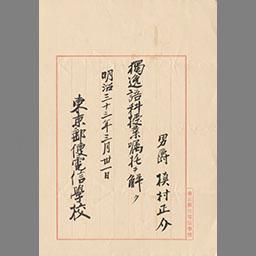 男爵 槇村正介
獨逸語科授業嘱托ヲ解ク
明治三十三年三月卅一日
東京郵便電信學校